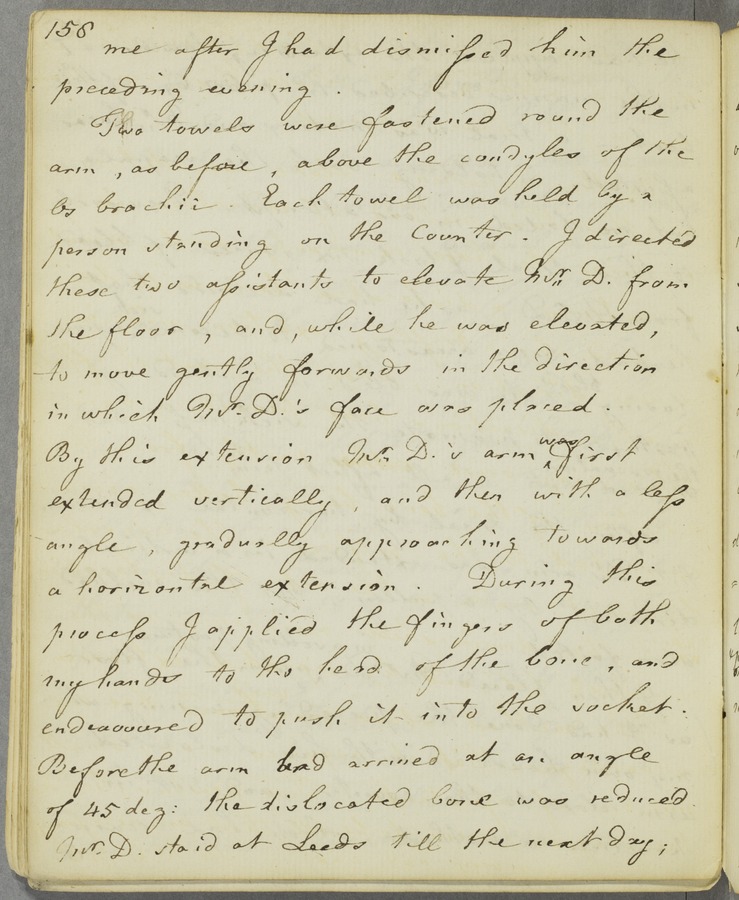 156
me after I had dismiſsed him the
preceding evening .
Two towels were fastened round the
arm , as before , above the condyles of the
Os brachii . Each towel was held by a
person standing on the Counter . I directed
these two aſsistants to elevate Mr. D. from
the floor , and , while he was elevated,
to move gently forwards in the direction
in which Mr. D.'s face was placed .
By this extension Mr. D.'s arm was first
extended vertically , and then with a leſs
angle , gradually approaching towards
a horizontal extension . During this
proceſs I applied the fingers of both
my hands to the head of the bone , and
endeavoured to push it into the socket .
Before the arm had arrived at an angle
of 45 deg: the dislocated bone was reduced.
Mr. D. staid at Leeds till the next day ;